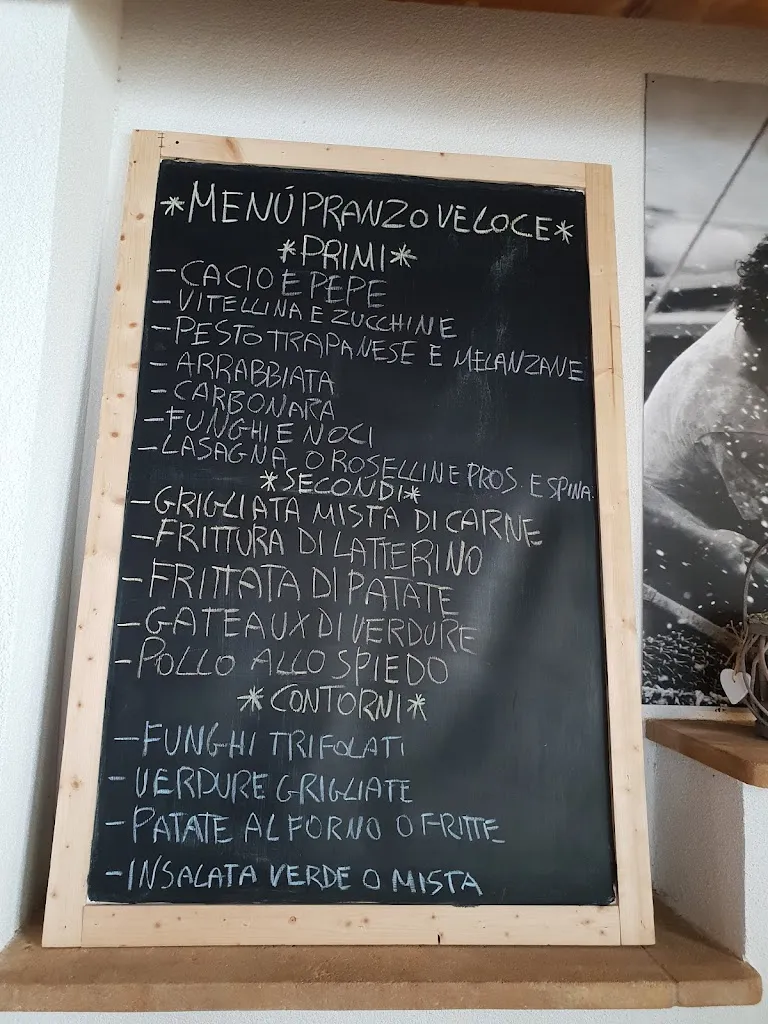 *MENÚ PRANZO VELOCE*
*PRIMI*
-CACIO E PEPE
-VITELLINA E ZUCCHINE
-PESTO TRAPANESE E MELANZANE
-ARRABBIATA
-CARBONARA
-FUNGHI E NOCI
-LASAGNA O ROSELLINE PROS. E SPINA.
*SECONDI*
-GRIGLIATA MISTA DI CARNE
-FRITTURA DI LATTERINO
-FRITTATA DI PATATE
-GATEAUX DI VERDURE
-POLLO ALLO SPIEDO
*CONTORNI*
-FUNGHI TRIFOLATI
-VERDURE GRIGLIATE
-PATATE AL FORNO O FRITTE
-INSALATA VERDE O MISTA